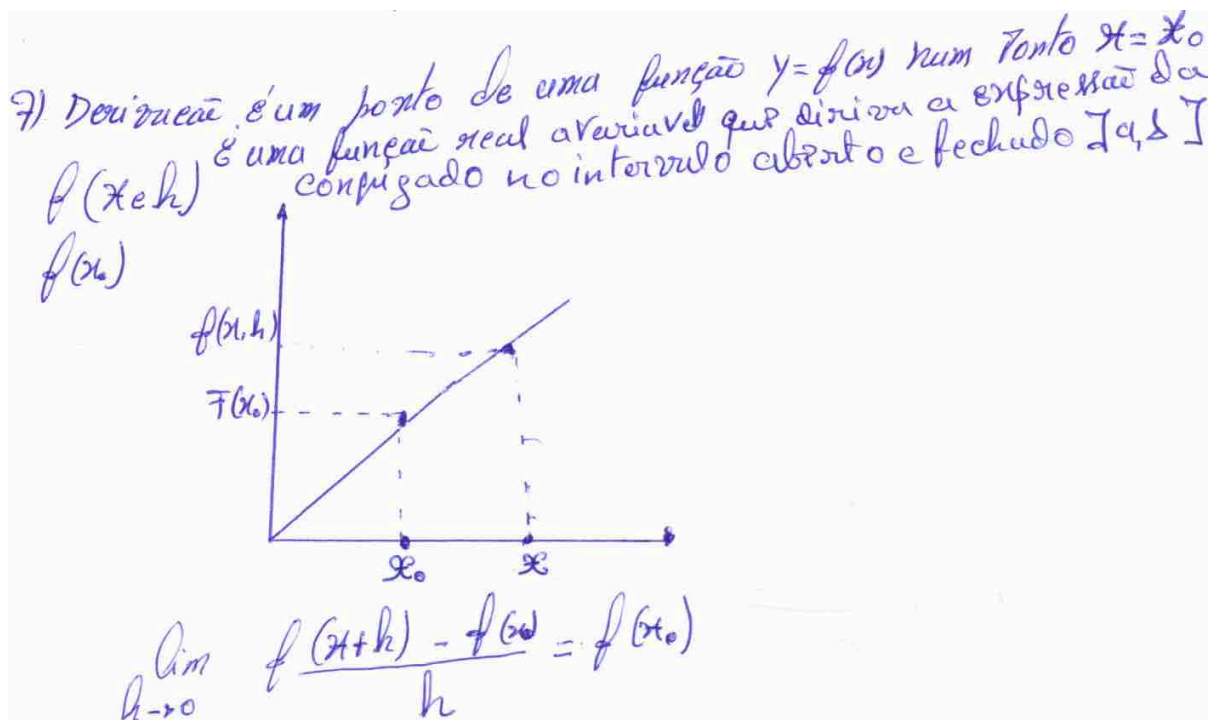 7) Derivacaē é um ponto de uma função y=f(x) num Ponto x=x₀
é uma funçaē real avariavel que diriva a expressaē da
f(x e h) conjugado no intervalo aberto e fechado ]a,b]
f(x₀)
f(x,h)
F(x₀)
x₀ x
lim f(x+h) - f(x₀) = f(x₀)
h→0 h